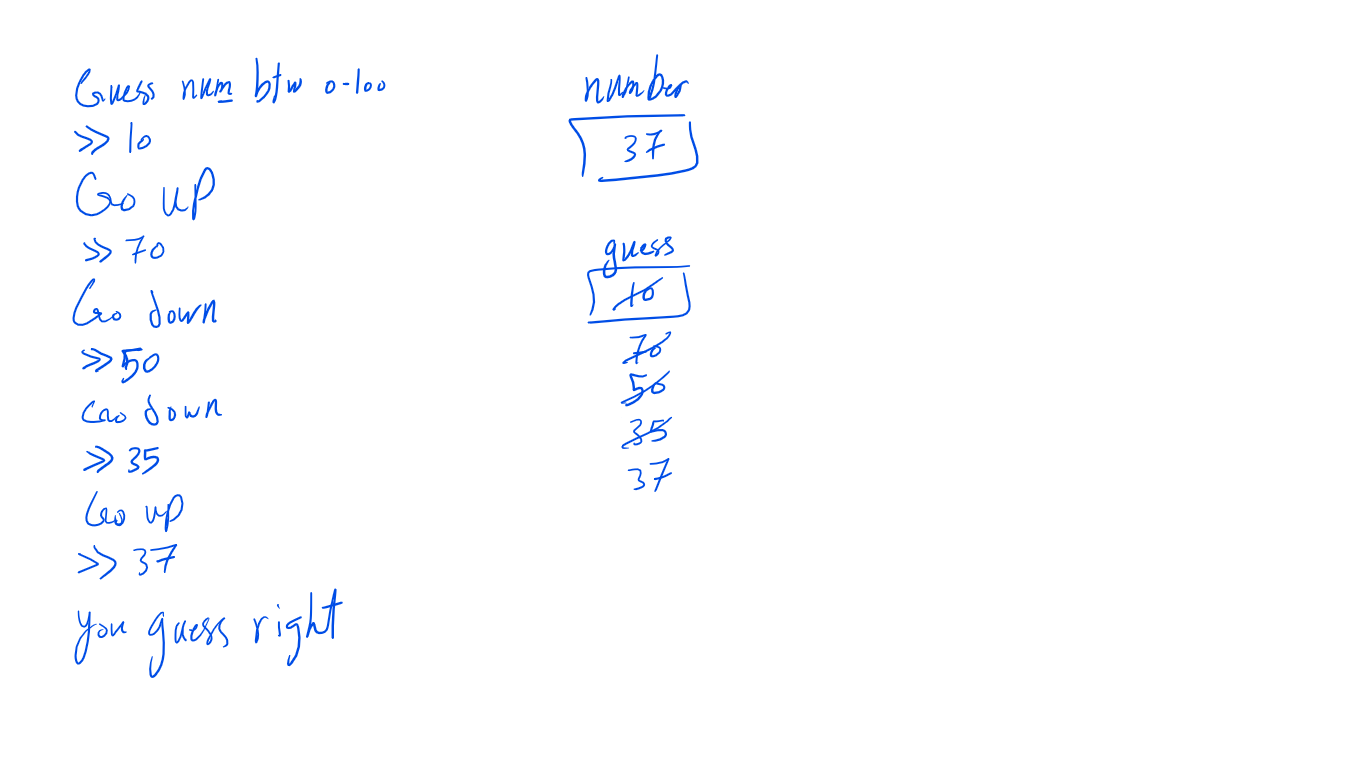 Guess num btw 0-100
>> 10
Go up
>> 70
Go down
>> 50
Go down
>> 35
Go up
>> 37
you guess right
number
37
guess
10
70
50
35
37